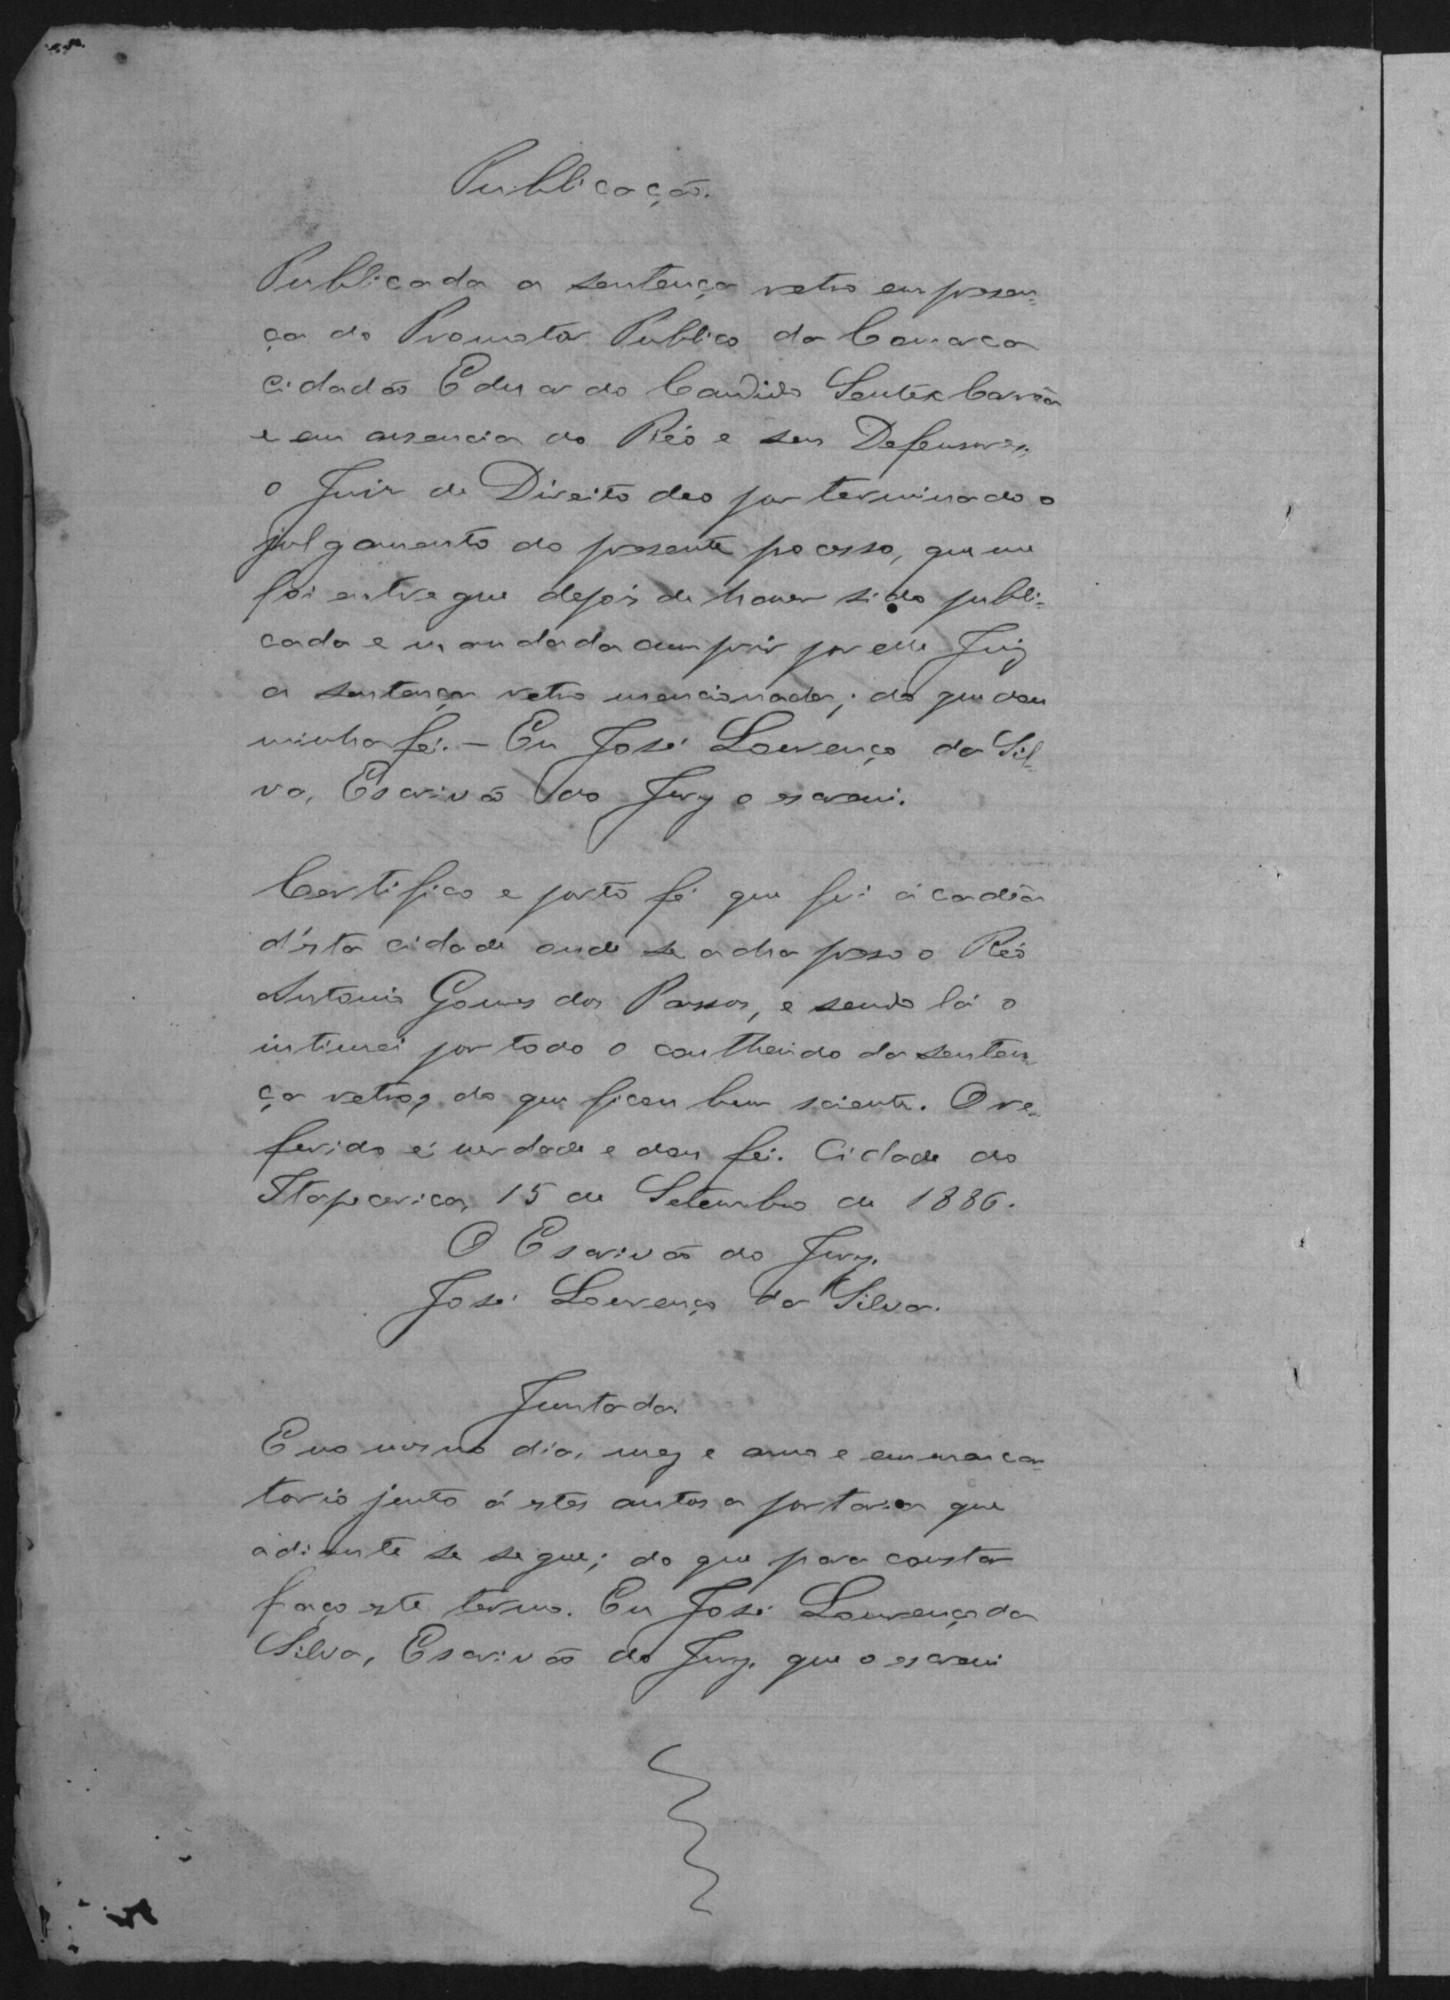 Publicação.
Publicada a sentença retro em presen-
ça do Promotor Publico da Comarca
cidadão Eduardo Candido
e em ausencia do Réo e seu Defensor,
o Juiz de Direito deo por terminado o
julgamento do presente pocesso, que me
foi entregue depois de haver sido publi-
cada e mandada cumprir por elle Juiz
a sentença retro mencionada; do que dou
minha fé. — Eu José Lourenço da Sil-
va, Escrivão do Jury o escrevi.
Certifico e porto fé que fui á cadêa
d'ésta cidade onde se acha preso o Réo
Antonio Gomes dos Passos, e sendo lá o
intimei por todo o contheudo da senten-
ça retro, do que ficou bem sciente. O re-
ferido é verdade e dou fé. Cidade do
Itapecerica, 15 de Setembro de 1886.
O Escrivão do Jury.
José Lourenço da Silva.
Juntada.
E no mesmo dia, mez e anno e em meu car-
torio junto á estes autos a portaria que
adiante se segue; do que para constar
faço este termo. Eu José Lourenço da
Silva, Escrivão do Jury, que o escrevi